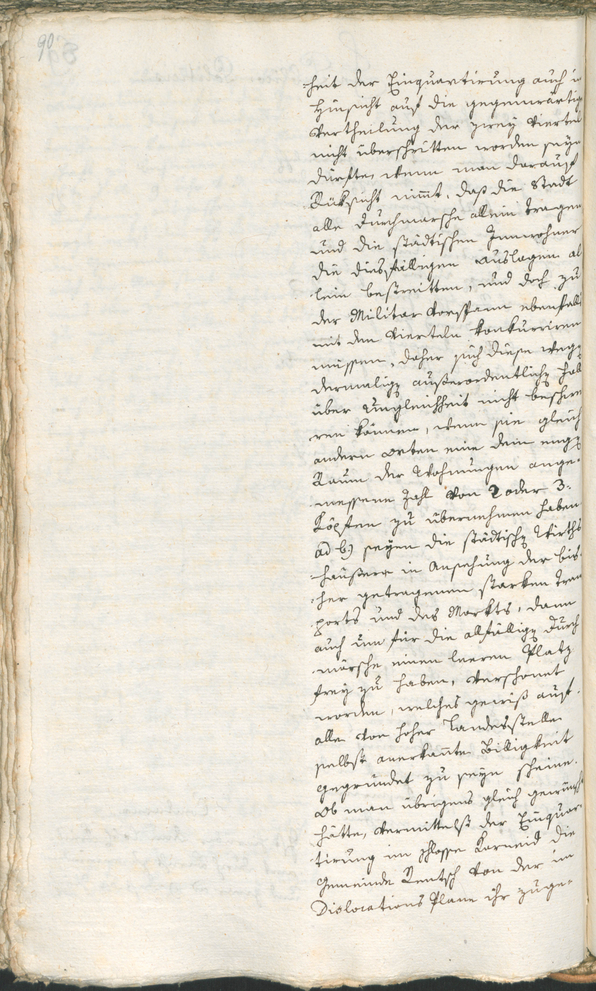 90
heit der Einquartirung auch in
Hinsicht auf die gegenwärtige
Vertheilung der zwey Vierteln
nicht überschritten worden seyn
dürfte, wenn man darauf
Rüksicht nimt, daß die Stadt
alle Durchmarsche allein tragen
und die städtischen Innwohner
die diesfälligen Auslagen al
lein bestreitten, und doch zu
der Militar Vorspann ebenfalls
mit den Vierteln konkurriren
müssen, daher sich diese wegen
dermalig außerordentlichen
über Ungleichheit nicht beschwe
ren können, wenn sie gleich
andern Orten eine dem engen
Raum der Wohnungen ange-
messene Zahl von 2 oder 3.
Köpften zu übernehmen haben
ad b) seyen die städtischen Wirths
häußer in Ansehung der bis-
her getragenen starken Trans
ports und des Markts, dann
auch um für die allfälligen Durch
märsche einen leeren Platz
frey zu haben, verschonet
worden, welches gewiß auf
aller von hoher Landesstelle
selbst anerkannten Billigkeit
gegründet zu seyn scheine.
Ob man übrigens gleich gewunscht
hätte, vermittelst der Einquar
tirung im Schlosse Karneid die
Gemeinde Rentsch von der im
Dislocations Plane ihr zuge-